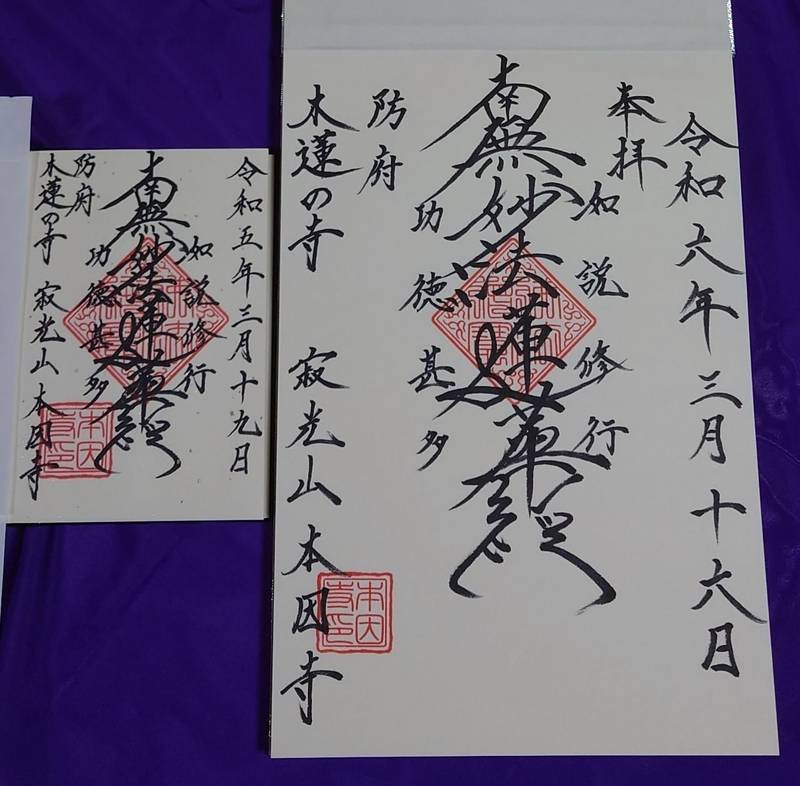 令和六年三月十六日
奉拝
如説修行
南無妙法蓮華経
功徳甚多
防府
木蓮の寺 寂光山本因寺
本因寺印
令和五年三月十九日
如説修行
南無妙法蓮華経
功徳甚多
防府
木蓮の寺 寂光山本因寺
本因寺印